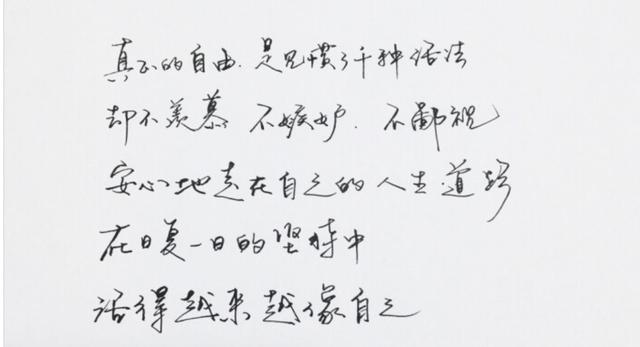 真正的自由.是见惯了千种活法
却不羡慕 不嫉妒.不鄙视
安心地走在自己的人生道路
在日复一日的坚持中
活得越来越像自己